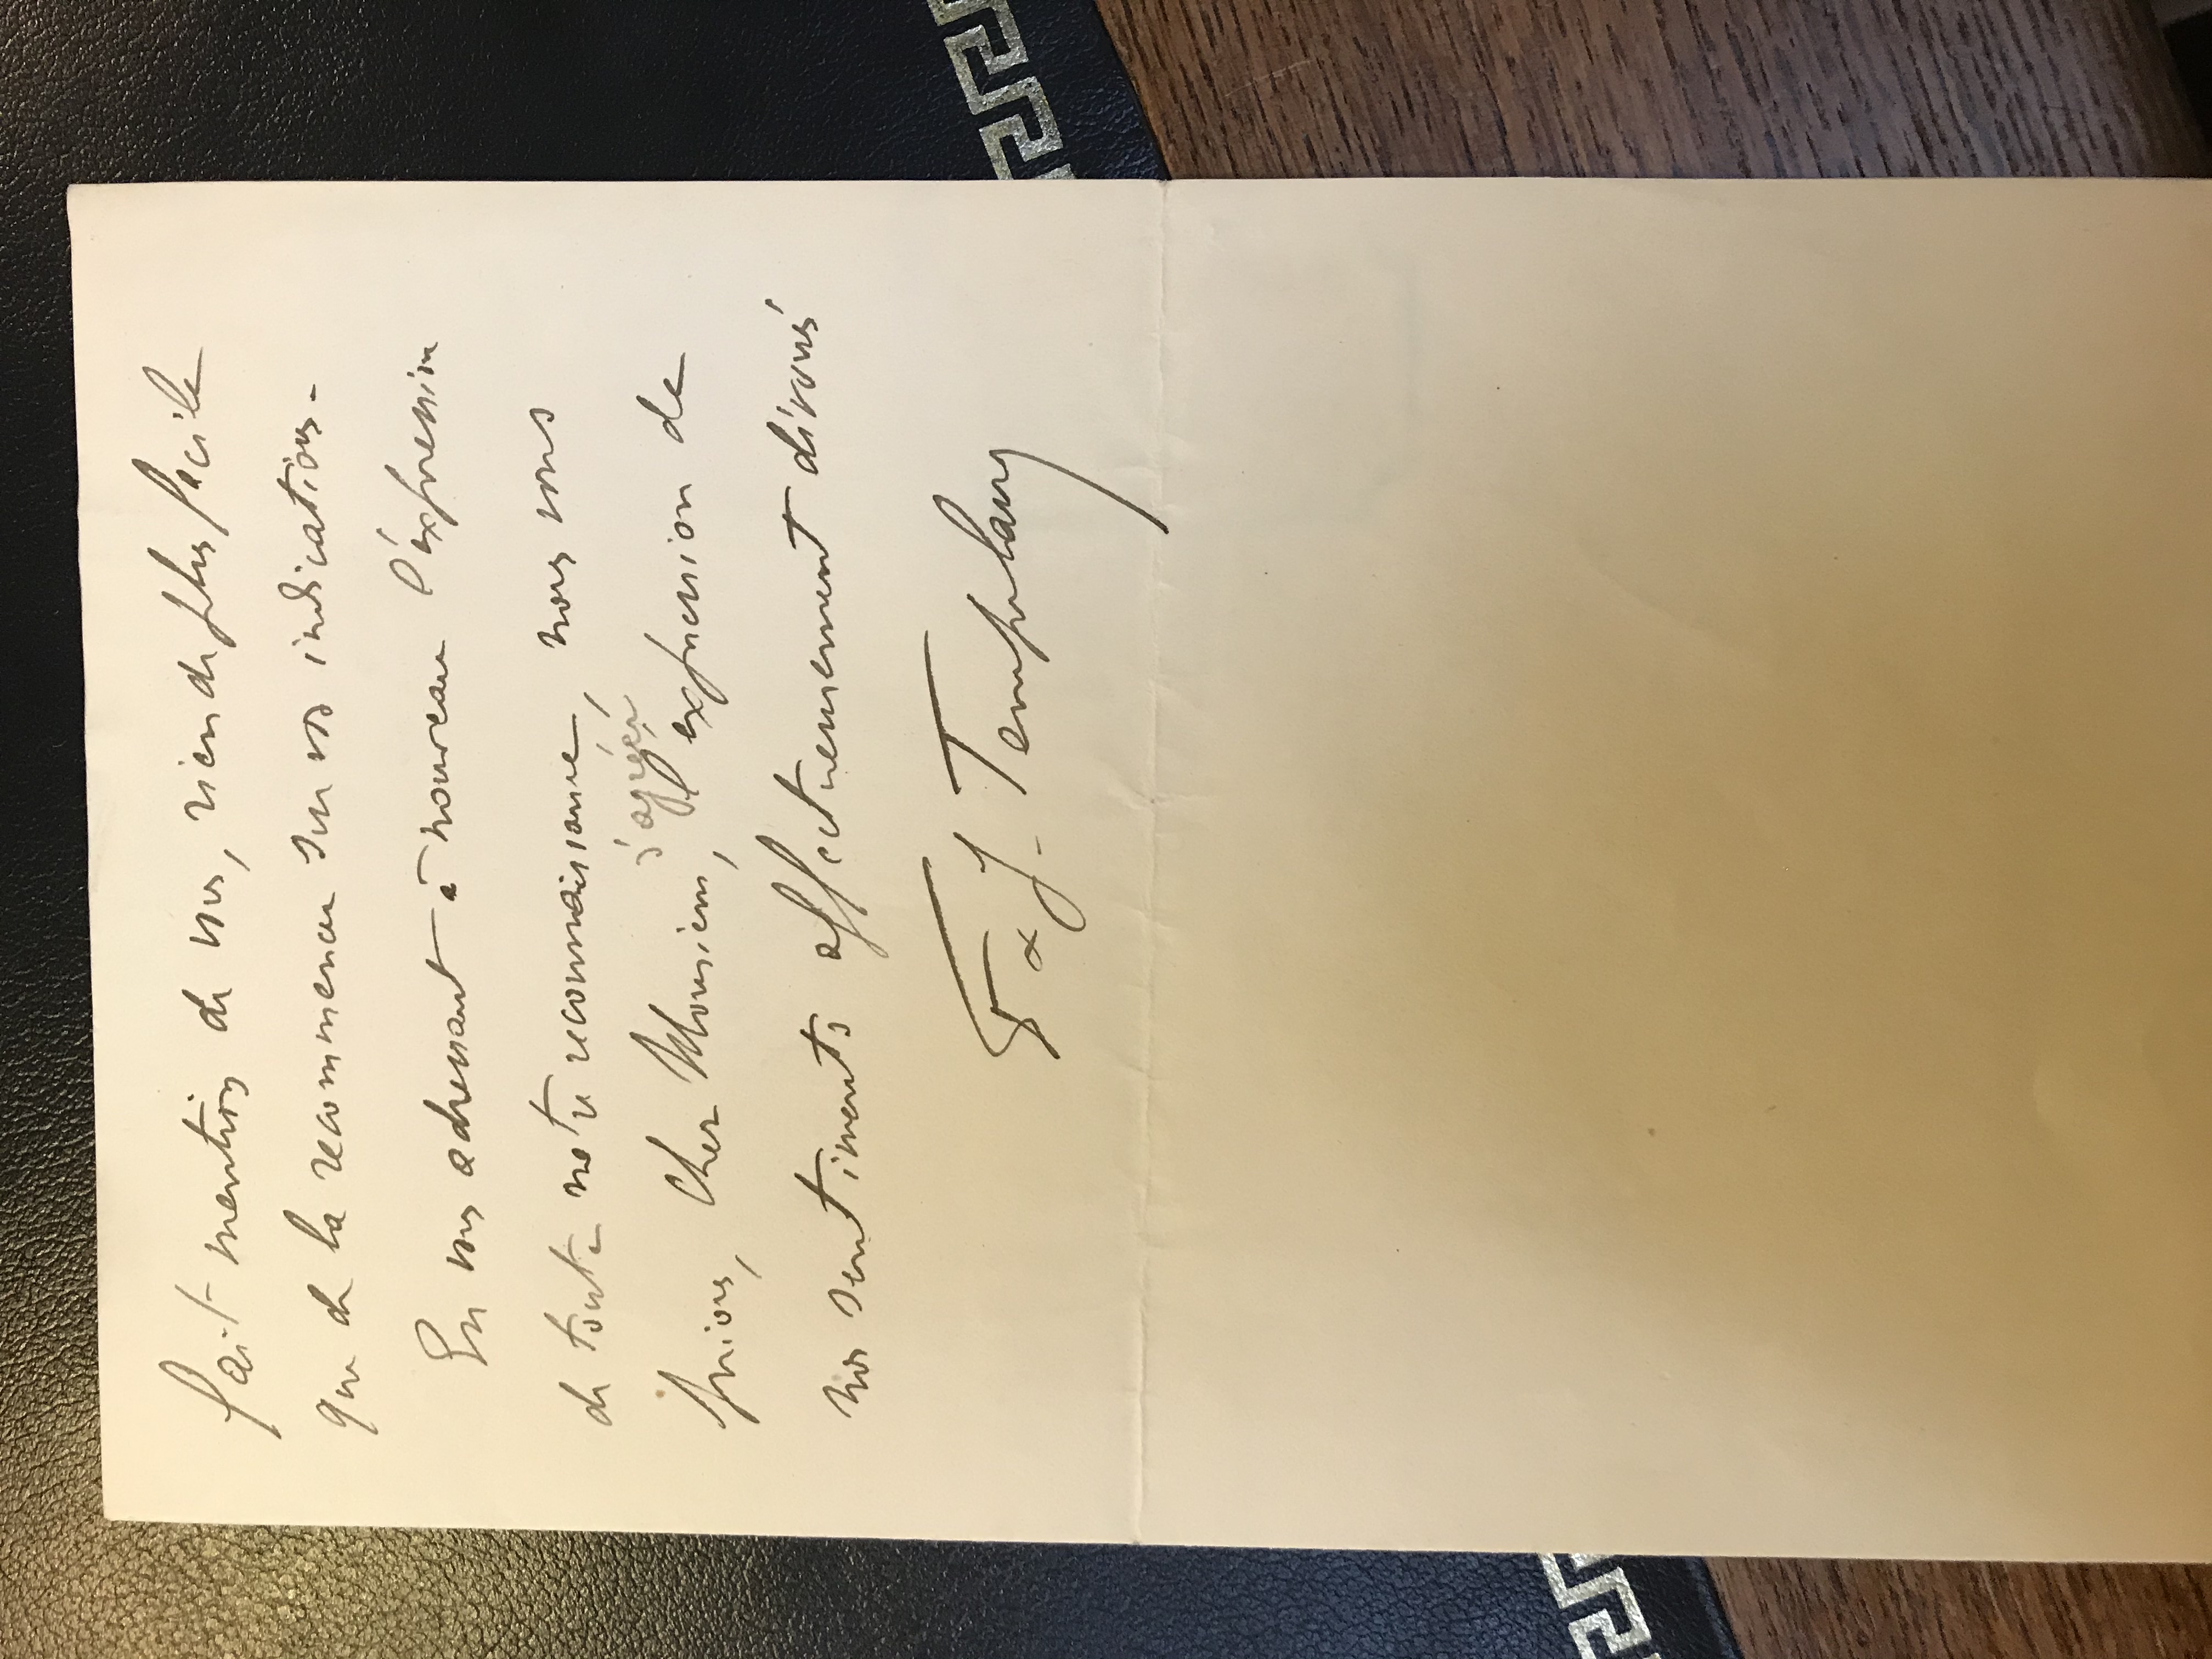 fait mention de vous, rien de plus facile
que de la recommencer sur vos indications.
En vous adressant à nouveau l'expression
de toute notre reconnaissance, nous vous
d'agréer
prions, Cher Monsieur, l'expression de
nos sentiments affectueusement dévoués
& J. Templany